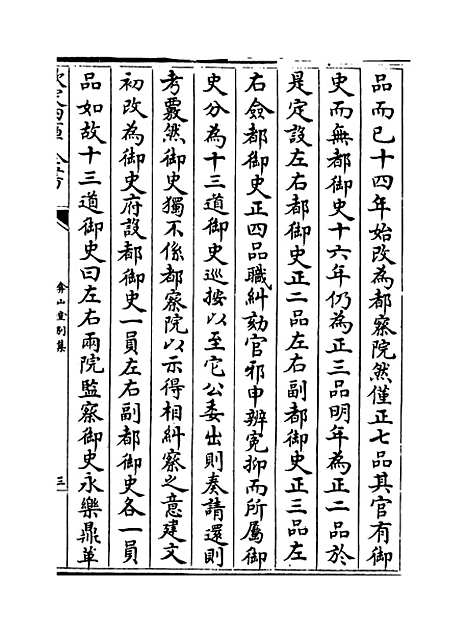 品而已十四年始改為都察院然僅正七品其官有御
史而無都御史十六年仍為正三品明年為正二品於
是定設左右都御史正二品左右副都御史正三品左
右僉都御史正四品職糾劾官邪申辨冤抑而所屬御
史分為十三道御史廵按以至它公委出則奏請還則
考覈然御史獨不係都察院以示得相糾察之意建文
初改為御史府設都御史一員左右副都御史各一員
品如故十三道御史曰左右兩院監察御史永樂鼎革
欽定四庫全書
弇山堂别集
三